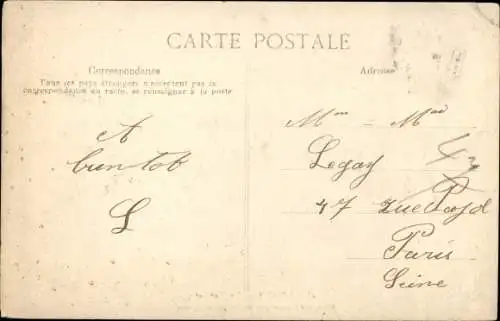 CARTE POSTALE
Correspondance
Tous les pays étrangers n'acceptent pas la
correspondance au recto, se renseigner à la poste
A
bientot
L
Adresse
Mr = Mad
Legay
47
Paris
Seine